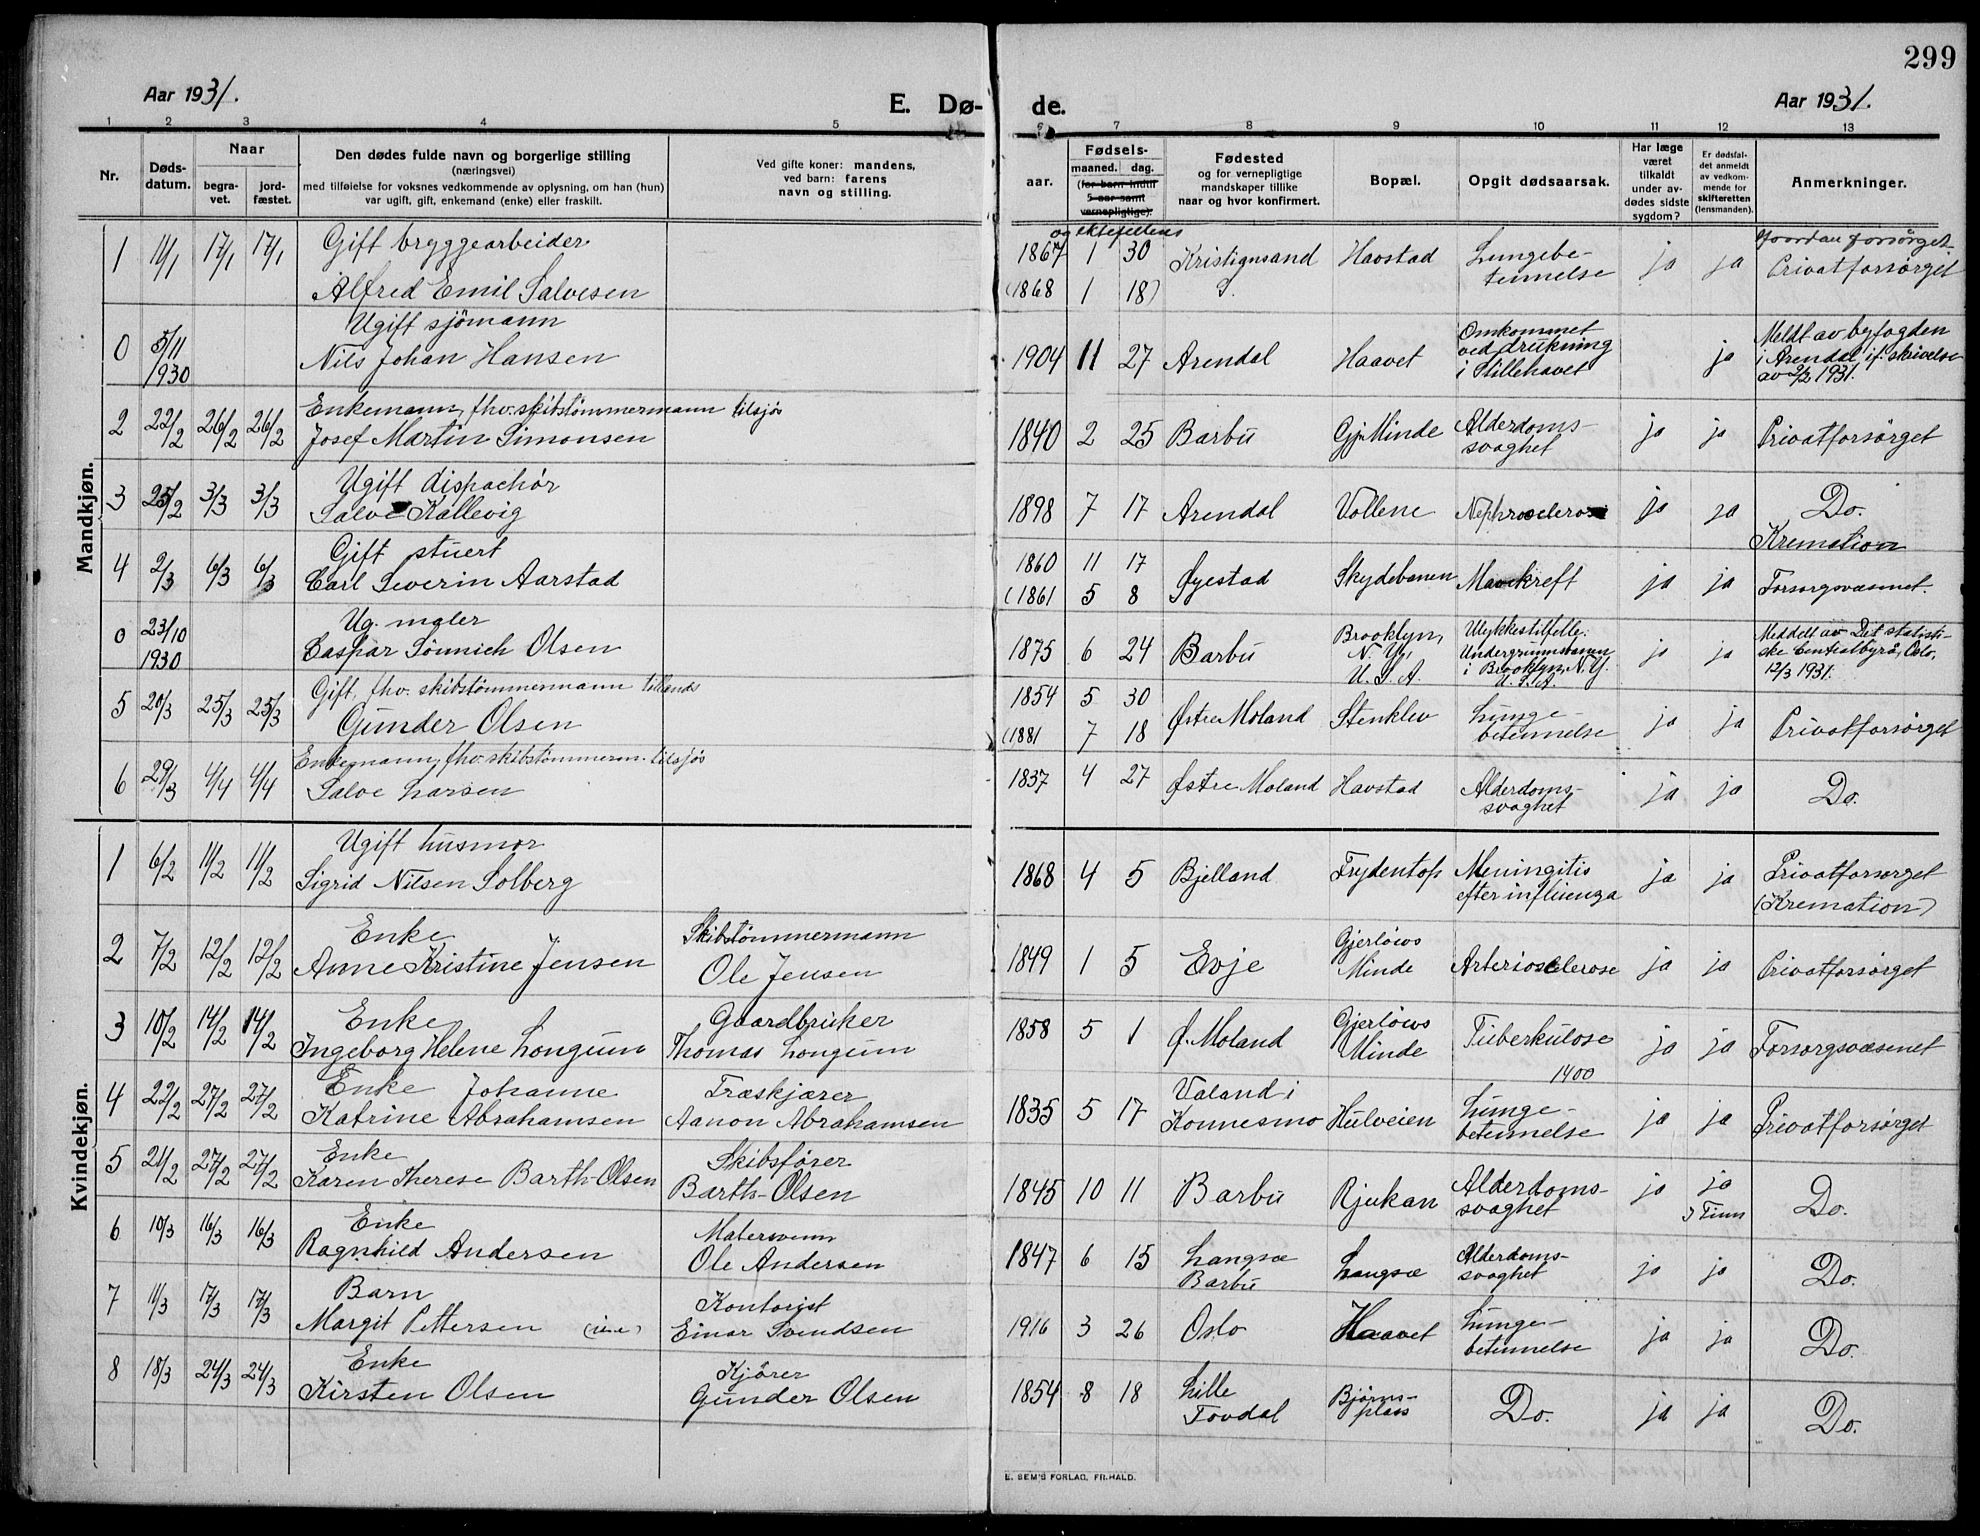 299
Aar 1931.
E. Dø- de.
Aar 1931.
1 2 3 4 5 6 7 8 9 10 11 12 13
Nr.
Døds-
datum.
Naar
begra-
vet.
jord-
fæstet.
Den dødes fulde navn og borgerlige stilling
(næringsvei)
med tilføielse for voksnes vedkommende av oplysning, om han (hun)
var ugift, gift, enkemand (enke) eller fraskilt.
Ved gifte koner: mandens,
ved barn: farens
navn og stilling.
aar.
Fødsels-
maaned. dag.
(for barn indtil
5 aar samt
vernepligtige).
og ektefellens
Fødested
og for vernepligtige
mandskaper tillike
naar og hvor konfirmert.
Bopæl.
Opgit dødsaarsak.
Har læge
været
tilkaldt
under av-
dødes sidste
sygdom?
Er dødsfal-
det anmeldt
av vedkom-
mende for
skifteretten
(lensmanden).
Anmerkninger.
Hvordan forsørget
Mandkjøn.
1 11/1 17/1 17/1 Gift bryggearbeider
Alfred Emil Salvesen
1867 1 30 Kristiansand Havstad Lungebe- ja ja Privatforsørget
(1868 1 18) S. tennelse
0 5/11 Ugift sjömann
1930 Nils Johan Hansen
1904 11 27 Arendal Haavet Omkommet ja Meldt av byfogden
ved drukning i Arendal if. skrivelse
i Stillehavet av 2/2 1931.
2 22/2 26/2 26/2 Enkemann, fhv. skibstömmermann tilsjøs
Josef Martin Simonsen
1840 2 25 Barbu Gj. Minde Alderdoms- ja ja Privatforsørget
svaghet
3 25/2 3/3 3/3 Ugift dispachør
Salve Kallevig
1898 7 17 Arendal Vollene Nephrosclerose ja ja Do.
Kremation
4 2/3 6/3 6/3 Gift stuert
Carl Severin Aarstad
1860 11 17 Øyestad Skydebanen Mavekreft ja ja Forsorgsvæsenet.
(1861 5 8
0 23/10 Ug. maler
1930 Caspar Sönnich Olsen
1875 6 24 Barbu Brooklyn, Ulykkestilfelle. ja ja Meddelt av Det statisti-
N. Y., Undergrunnsbanen ske Centralbyrå, Oslo,
U. S. A. i Brooklyn, N. Y. 12/3 1931.
U. S. A.
5 20/3 25/3 25/3 Gift, fhv. skibstömmermann tillands
Gunder Olsen
1854 5 30 Østre Moland Stenklev Lunge- ja ja Privatforsørget
(1881 7 18 betennelse
6 29/3 4/4 4/4 Enkemann, fhv. skibstömmerm. tilsjøs
Salve Larsen
1837 4 27 Østre Moland Havstad Alderdoms- ja ja Do.
svaghet
Kvindekjøn.
1 6/2 11/2 11/2 Ugift husmor
Sigrid Nilsen Solberg
1868 4 5 Bjelland Frydentop Meningitis ja ja Privatforsørget
efter influenza (Kremation)
2 7/2 12/2 12/2 Enke Skibstömmermann
Anne Kristine Jensen Ole Jensen
1849 1 5 Evje Gjerløws Arteriosclerose ja ja Privatforsørget
Minde
3 10/2 14/2 14/2 Enke Gaardbruker
Ingeborg Helene Longum Thomas Longum
1858 5 1 Ø. Moland Gjerløws Tuberkulose ja ja Forsorgsvæsenet
Minde
1400
4 22/2 27/2 27/2 Enke Johanne Træskjærer
Katrine Abrahamsen Aanon Abrahamsen
1835 5 17 Valand i Hulveien Lunge- ja ja Privatforsørget
Konnesmo betennelse
5 21/2 27/2 27/2 Enke Skibsfører
Karen Therese Barth-Olsen Barth-Olsen
1845 10 11 Barbu Rjukan Alderdoms- ja ja Do.
svaghet I Tinn
6 10/3 16/3 16/3 Enke
Ragnhild Andersen Ole Andersen
1847 6 15 Langsæ Langsæ Alderdoms- ja ja Do.
Barbu svaghet
7 11/3 17/3 17/3 Barn Kontorist
Margit Pettersen Einar Svendsen
1916 3 26 Oslo Haavet Lunge- ja ja Do.
betennelse
8 18/3 24/3 24/3 Enke Kjörer
Kirsten Olsen Gunder Olsen
1854 8 18 Lille Bjørns- Do. ja ja Do.
Tovdal plass
E. SEM'S FORLAG, FR.HALD.